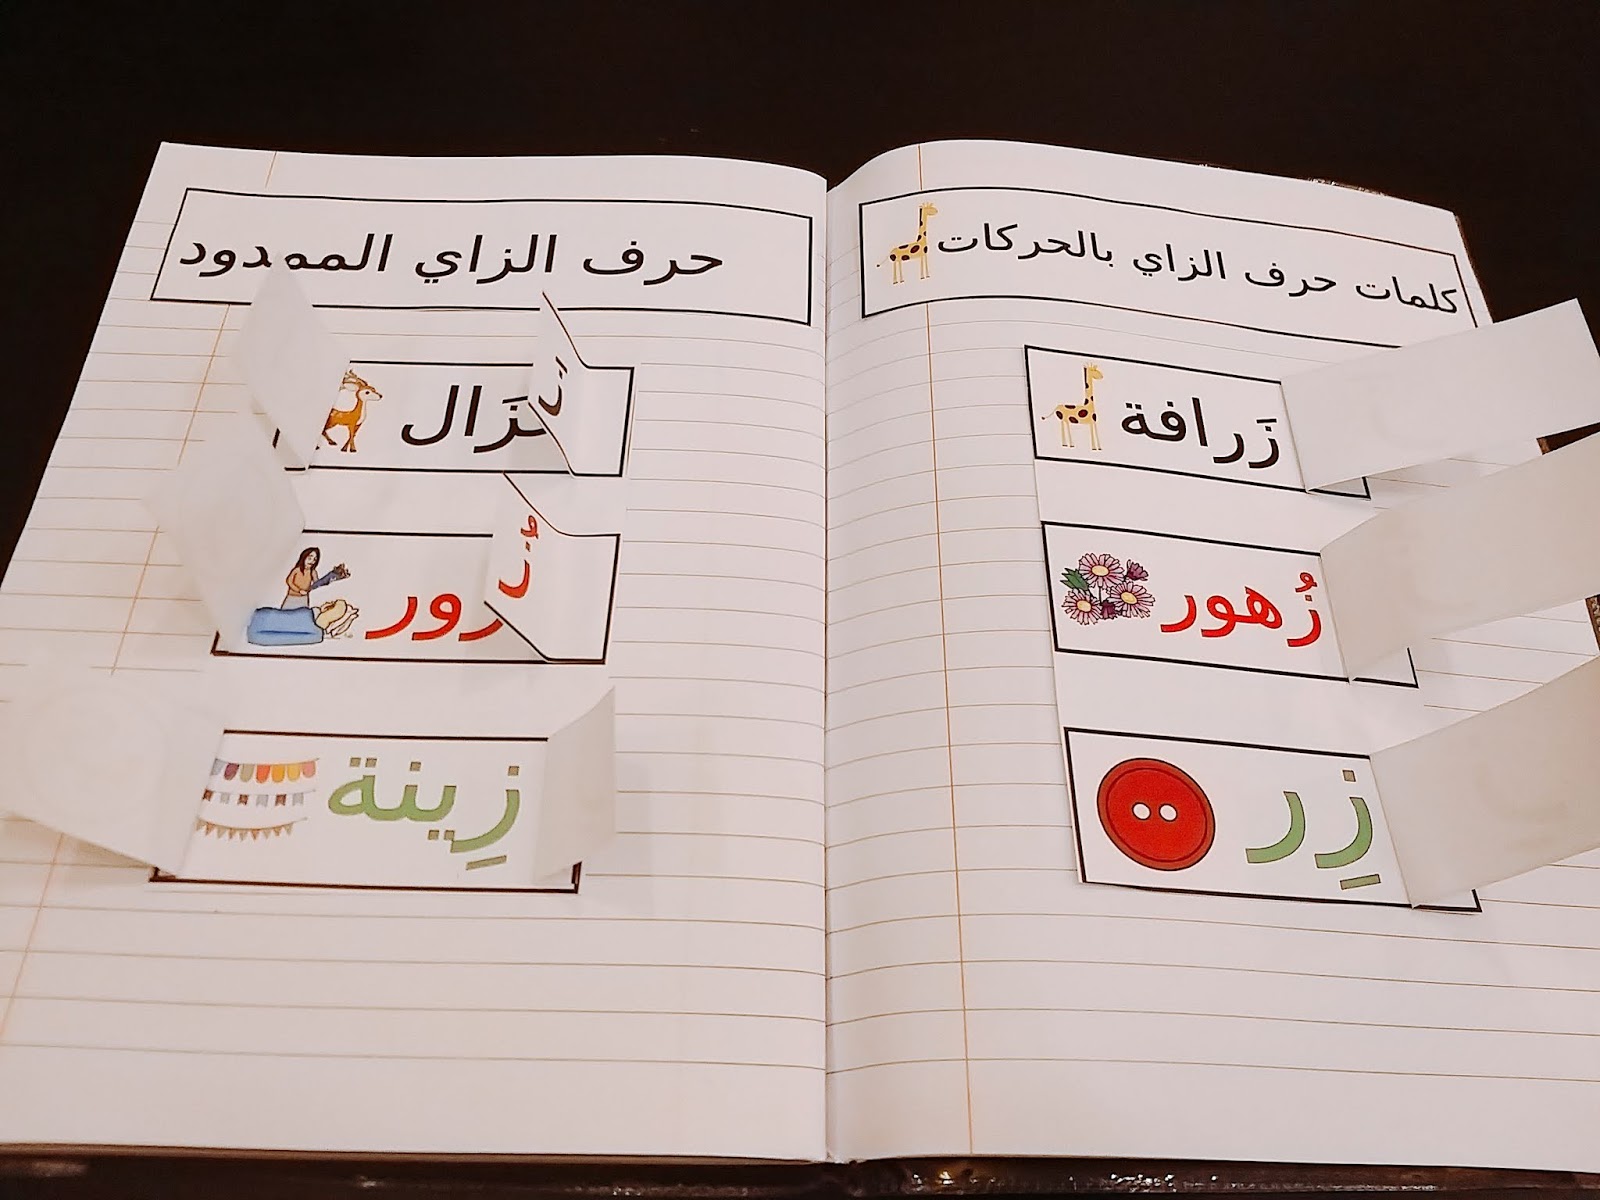 كلمات حرف الزاي بالحركات
زَرافة
زُهور
زِر
حرف الزاي الممدود
زَال
زور
زِينة